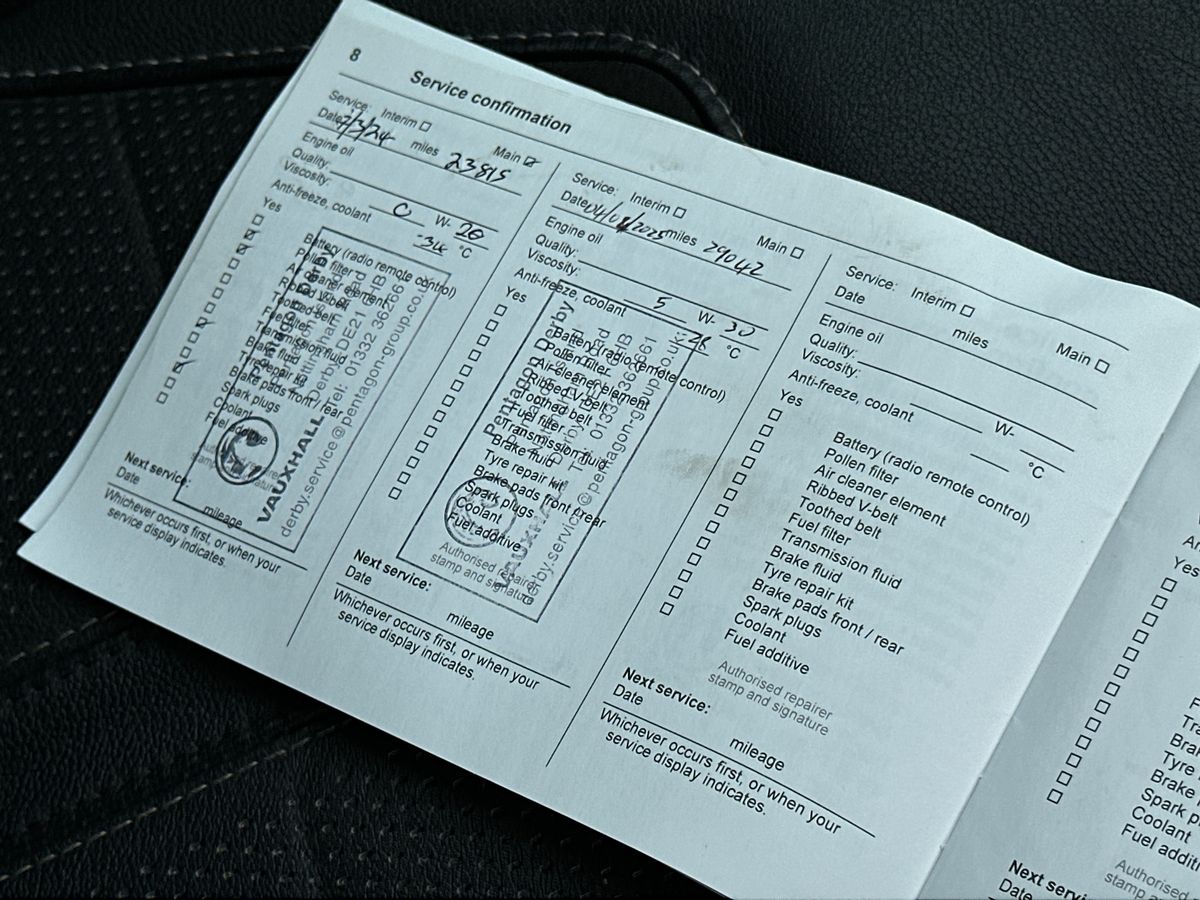 8
Service confirmation
Service: Interim ☐ Main ☑
Date 7/3/24 miles 23815
Engine oil
Quality:
Viscosity: 0 W- 20
Anti-freeze, coolant -34 °C
Yes
Battery (radio remote control)
Pollen filter
Air cleaner element
Ribbed V-belt
Toothed belt
Fuel filter
Transmission fluid
Brake fluid
Tyre repair kit
Brake pads front / rear
Spark plugs
Coolant
Fuel additive
Derby
Derby DE21
Tel: 01332 362661
VAUXHALL
derby.service@pentagon-group.co.uk
Next service:
Date mileage
Whichever occurs first, or when your
service display indicates.
Service: Interim ☐ Main ☐
Date 04/04/2025 miles 29042
Engine oil
Quality:
Viscosity: 5 W- 30
Anti-freeze, coolant °C
Yes
Battery (radio remote control)
Pollen filter
Air cleaner element
Ribbed V-belt
Toothed belt
Fuel filter
Transmission fluid
Brake fluid
Tyre repair kit
Brake pads front / rear
Spark plugs
Coolant
Fuel additive
Pentagon Derby
VAUXHALL
derby.service@pentagon-group.co.uk
Authorised repairer
stamp and signature
Next service:
Date mileage
Whichever occurs first, or when your
service display indicates.
Service: Interim ☐ Main ☐
Date miles
Engine oil
Quality:
Viscosity: W-
Anti-freeze, coolant °C
Yes
Battery (radio remote control)
Pollen filter
Air cleaner element
Ribbed V-belt
Toothed belt
Fuel filter
Transmission fluid
Brake fluid
Tyre repair kit
Brake pads front / rear
Spark plugs
Coolant
Fuel additive
Authorised repairer
stamp and signature
Next service:
Date mileage
Whichever occurs first, or when your
service display indicates.
Yes
Brake
Tyre
Brake
Spark
Coolant
Fuel
Authorised
stamp
Next
Date